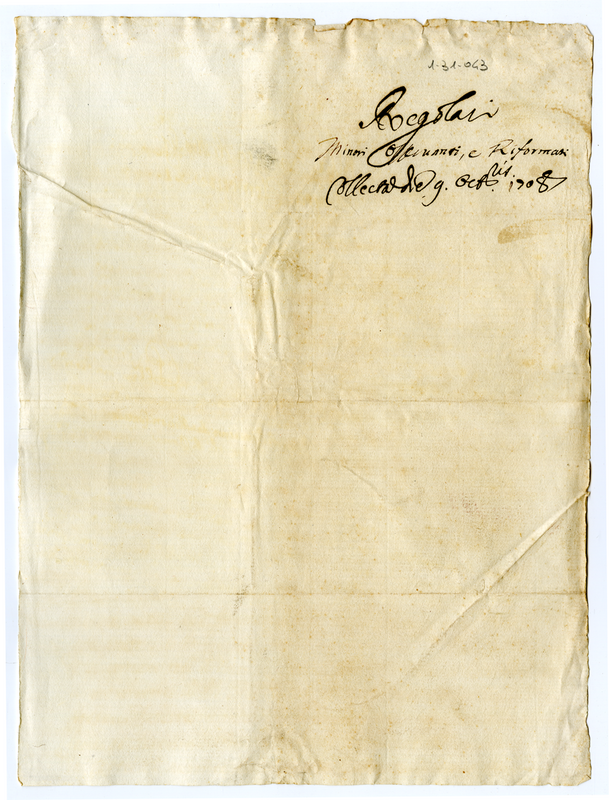 1-31-043
Regolari
Minori Osservanti, e Riformati
Collectæ die 9. Octbris. 1708